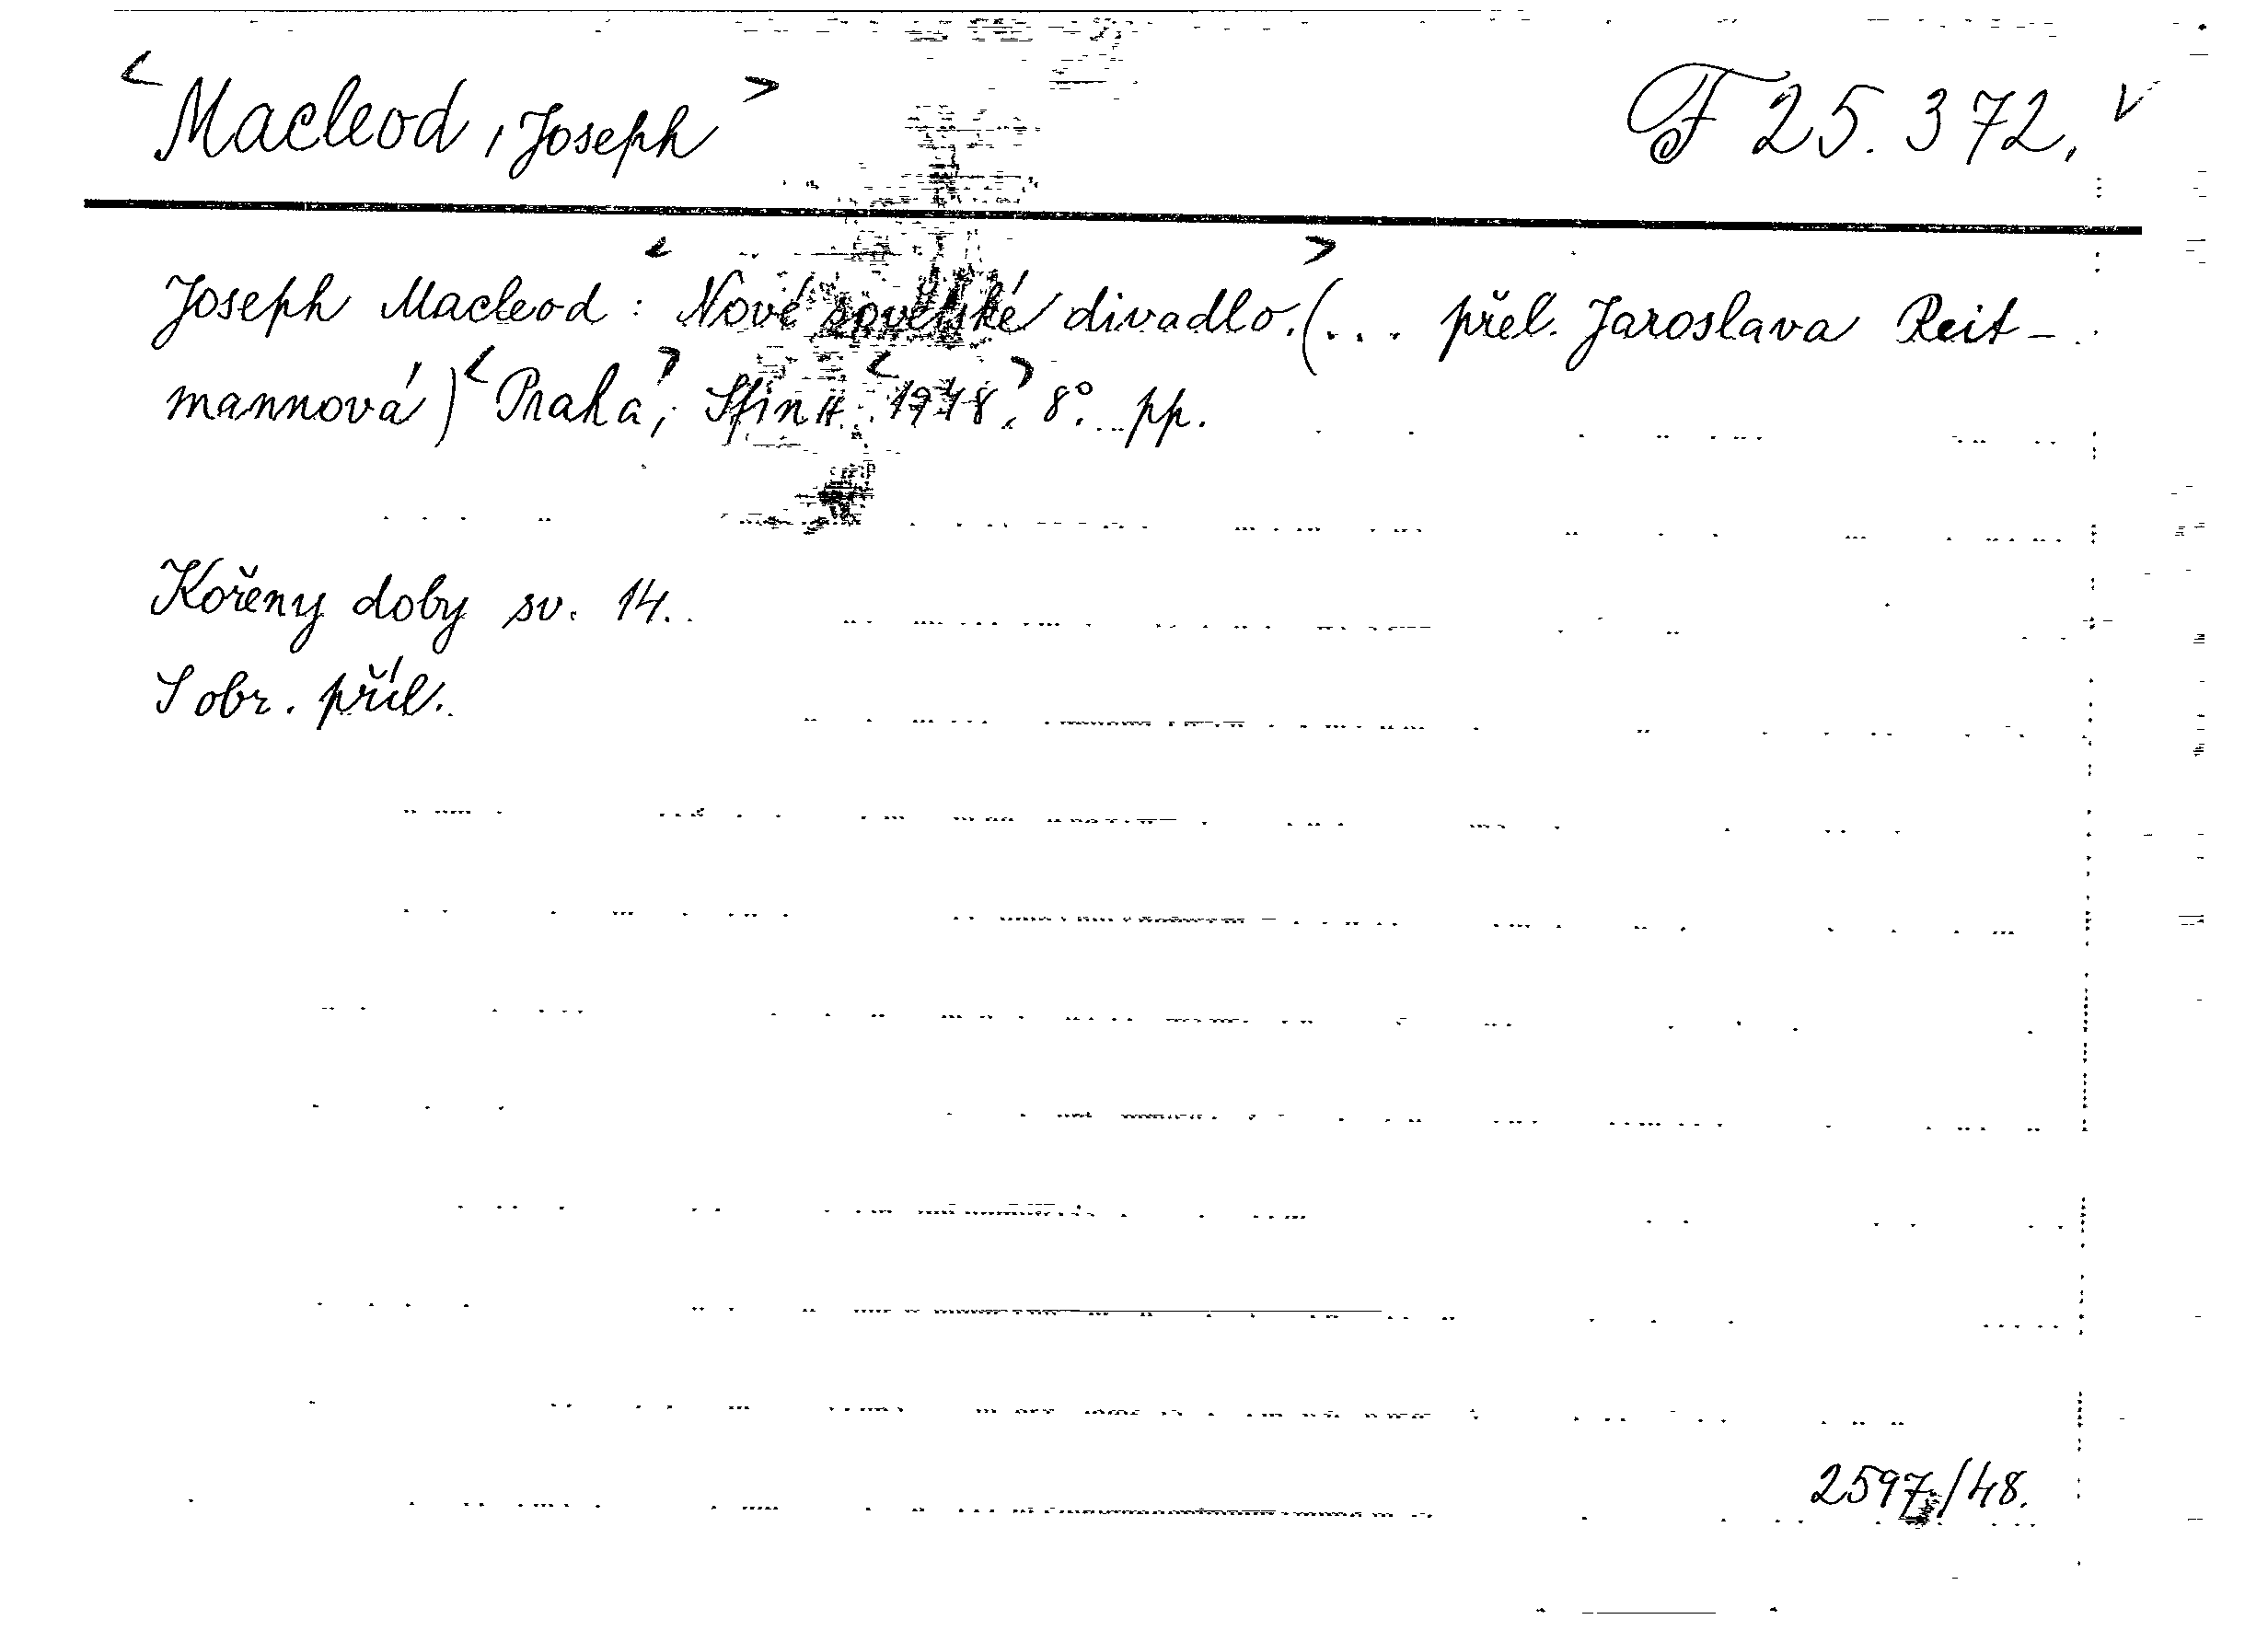 <Macleod, Joseph> F 25.372. v
Joseph Macleod: <Nové sovětské divadlo.> (... přel. Jaroslava Reit-
mannová) <Praha>, Sfinx <1948>. 8°. pp.
Kořeny doby sv. 14.
S obr. příl.
2597/48.